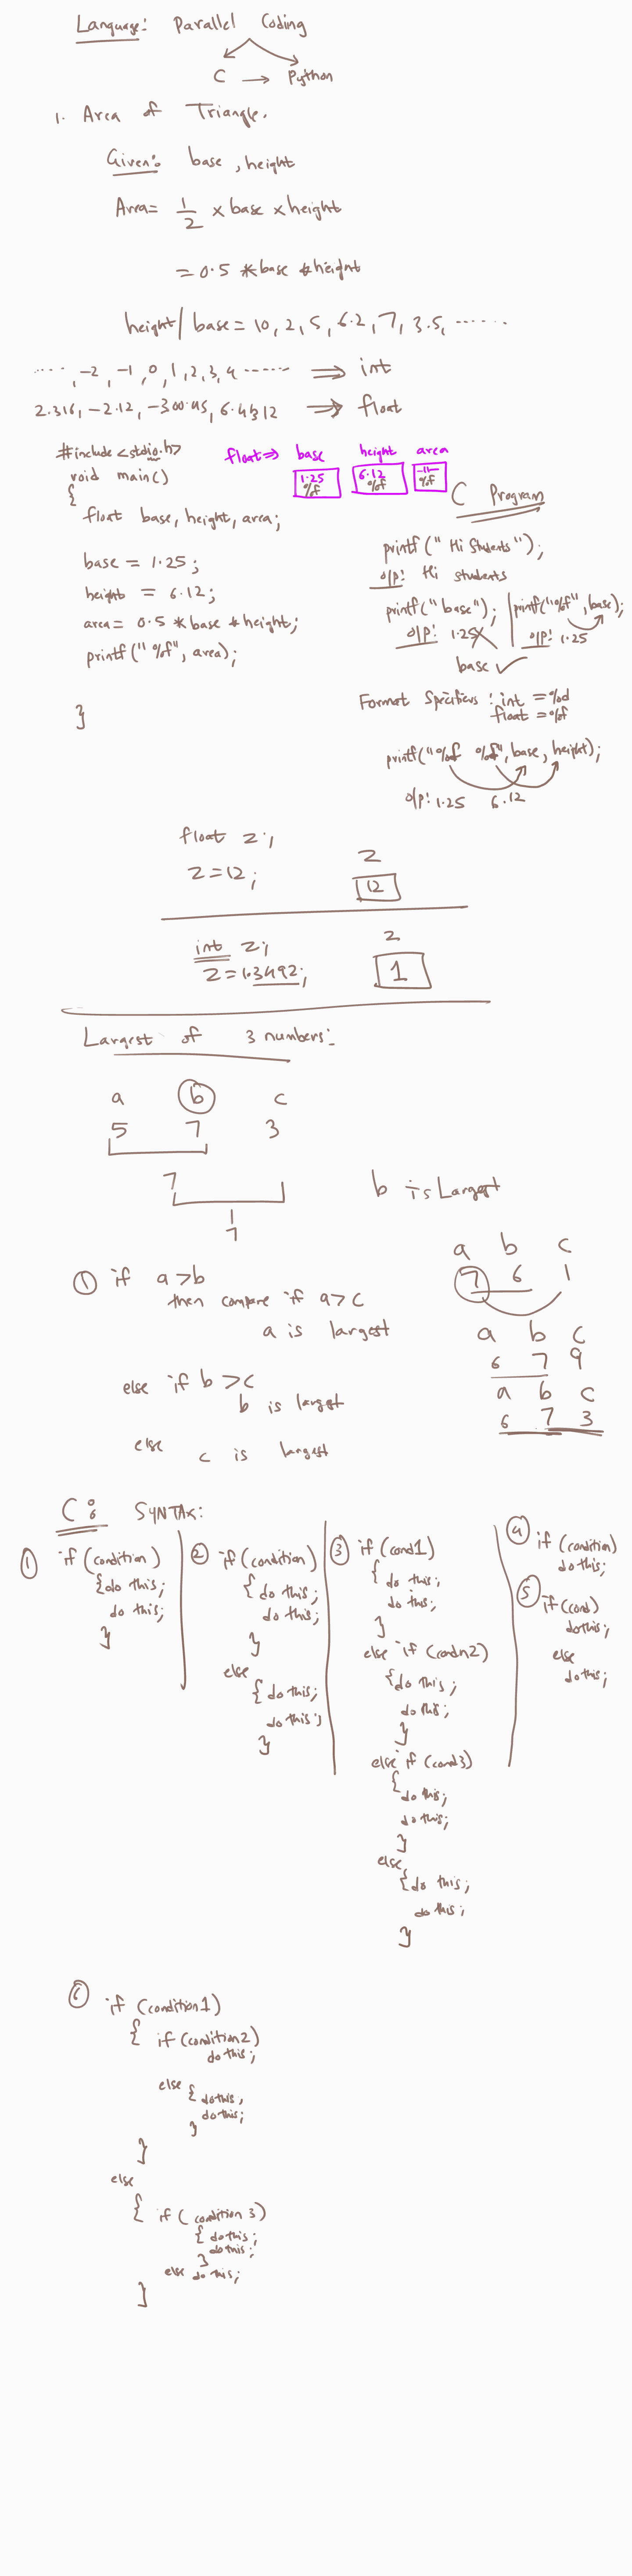 Language: Parallel Coding
C → Python
1. Area of Triangle.
Given: base, height
Area = 1/2 × base × height
= 0.5 * base * height
height/base = 10, 2, 5, 6.2, 7, 3.5, ......
...., -2, -1, 0, 1, 2, 3, 4 ...... ⇒ int
2.316, -2.12, -300.45, 6.4312 ⇒ float
#include <stdio.h>
void main()
{
float base, height, area;
base = 1.25;
height = 6.12;
area = 0.5 * base * height;
printf("%f", area);
}
float ⇒ base height area
1.25 6.12
%f %f %f
C Program
printf("Hi Students");
o/p: Hi students
printf("base"); printf("%f", base);
o/p: 1.25 ✗ o/p: 1.25
base ✓
Format Specifiers: int = %d
float = %f
printf("%f %f", base, height);
o/p: 1.25 6.12
float z;
z = 12;
z
12
int z;
z = 1.3492;
z
1
Largest of 3 numbers:
a b c
5 7 3
7
7
b is Largest
① if a > b
then compare if a > c
a is largest
else if b > c
b is largest
else c is largest
a b c
7 6 1
a b c
6 7 9
a b c
6 7 3
C: SYNTAX:
① if (condition)
{do this;
do this;
}
② if (condition)
{ do this;
do this;
}
else
{ do this;
do this;
}
③ if (cond1)
{ do this;
do this;
}
else if (condn2)
{do this;
do this;
}
else if (cond3)
{
do this;
do this;
}
else
{do this;
do this;
}
④ if (condition)
do this;
⑤ if (cond)
do this;
else
do this;
⑥ if (condition1)
{ if (condition2)
do this;
else { do this;
do this;
}
}
else
{ if ( condition 3)
{ do this;
do this;
}
else do this;
}